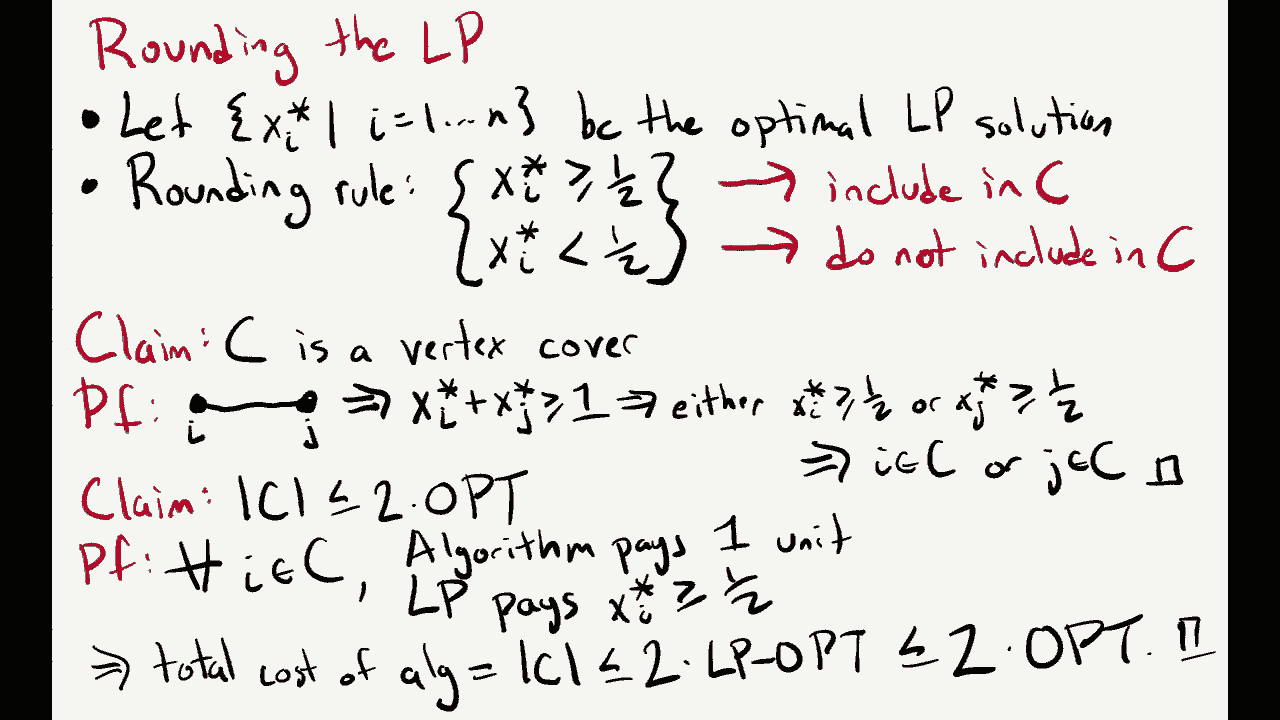 Rounding the LP
• Let {x_i^* | i=1...n} be the optimal LP solution
• Rounding rule: { x_i^* ≥ 1/2 } → include in C
{ x_i^* < 1/2 } → do not include in C
Claim: C is a vertex cover
Pf: i j ⇒ x_i^* + x_j^* ≥ 1 ⇒ either x_i^* ≥ 1/2 or x_j^* ≥ 1/2
⇒ i∈C or j∈C □
Claim: |C| ≤ 2·OPT
Pf: ∀ i∈C, Algorithm pays 1 unit
LP pays x_i^* ≥ 1/2
⇒ total cost of alg = |C| ≤ 2·LP-OPT ≤ 2·OPT. □